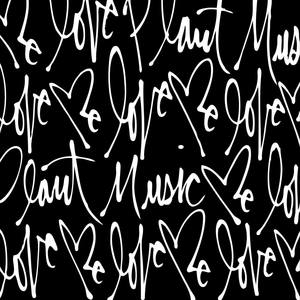 Me love laut Mus
love Me love Me love
laut Music Me
love Me love Me love